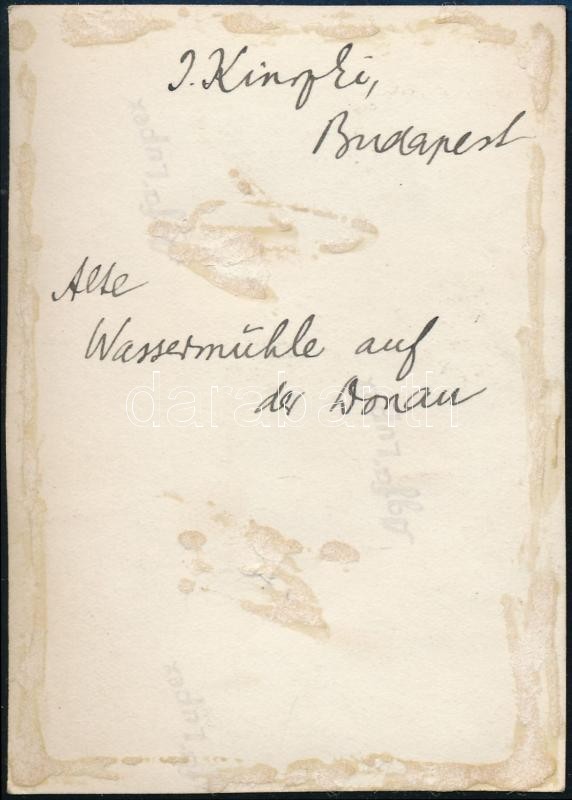 J. Kinszki,
Budapest
Alte
Wassermühle auf
der Donau
darabanth
Agfa-Lupex
Agfa-Lupex
Agfa-Lupex